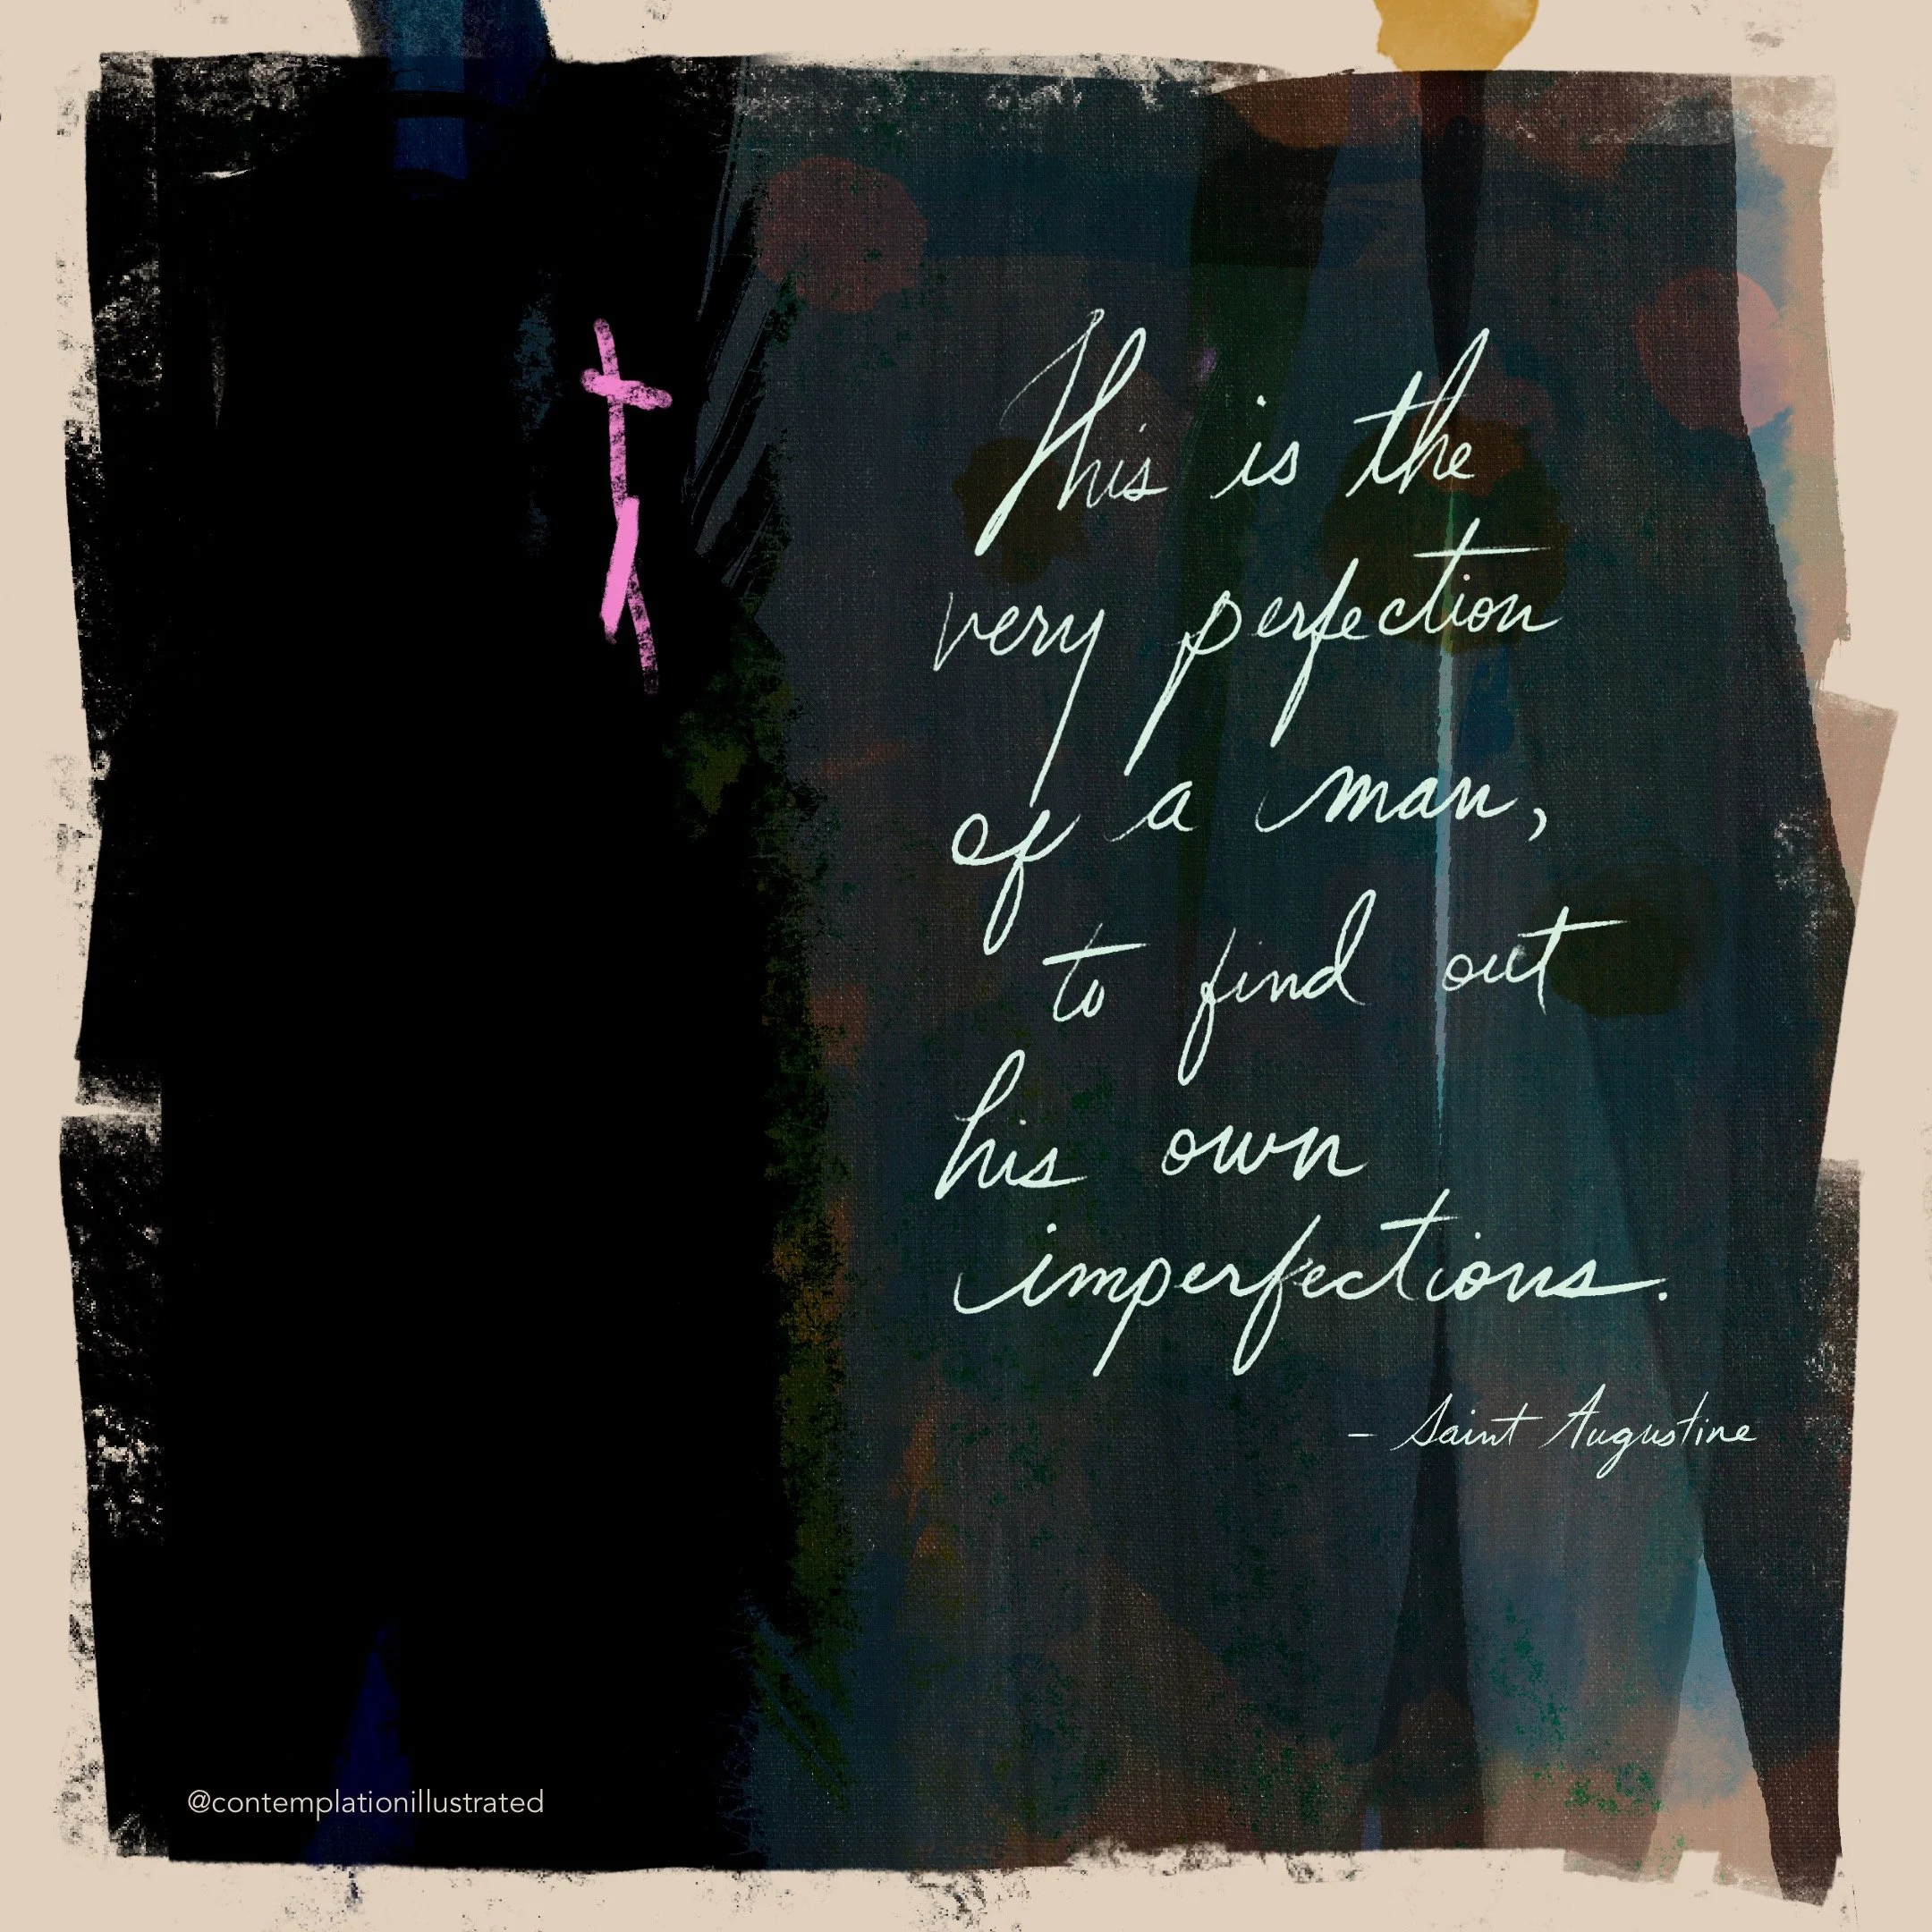 This is the
very perfection
of a man,
to find out
his own
imperfections.
- Saint Augustine
@contemplationillustrated